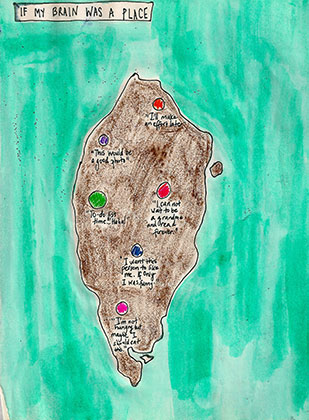 IF MY BRAIN WAS A PLACE
"I'll make
an effort later"
"This would be
a good photo"
To-do list
time...
"I can not
wait to be
a grandma
and read
forever."
"I want this
person to like
me. If only
I was funny"
"I'm not
hungry but
maybe I
should eat
one."